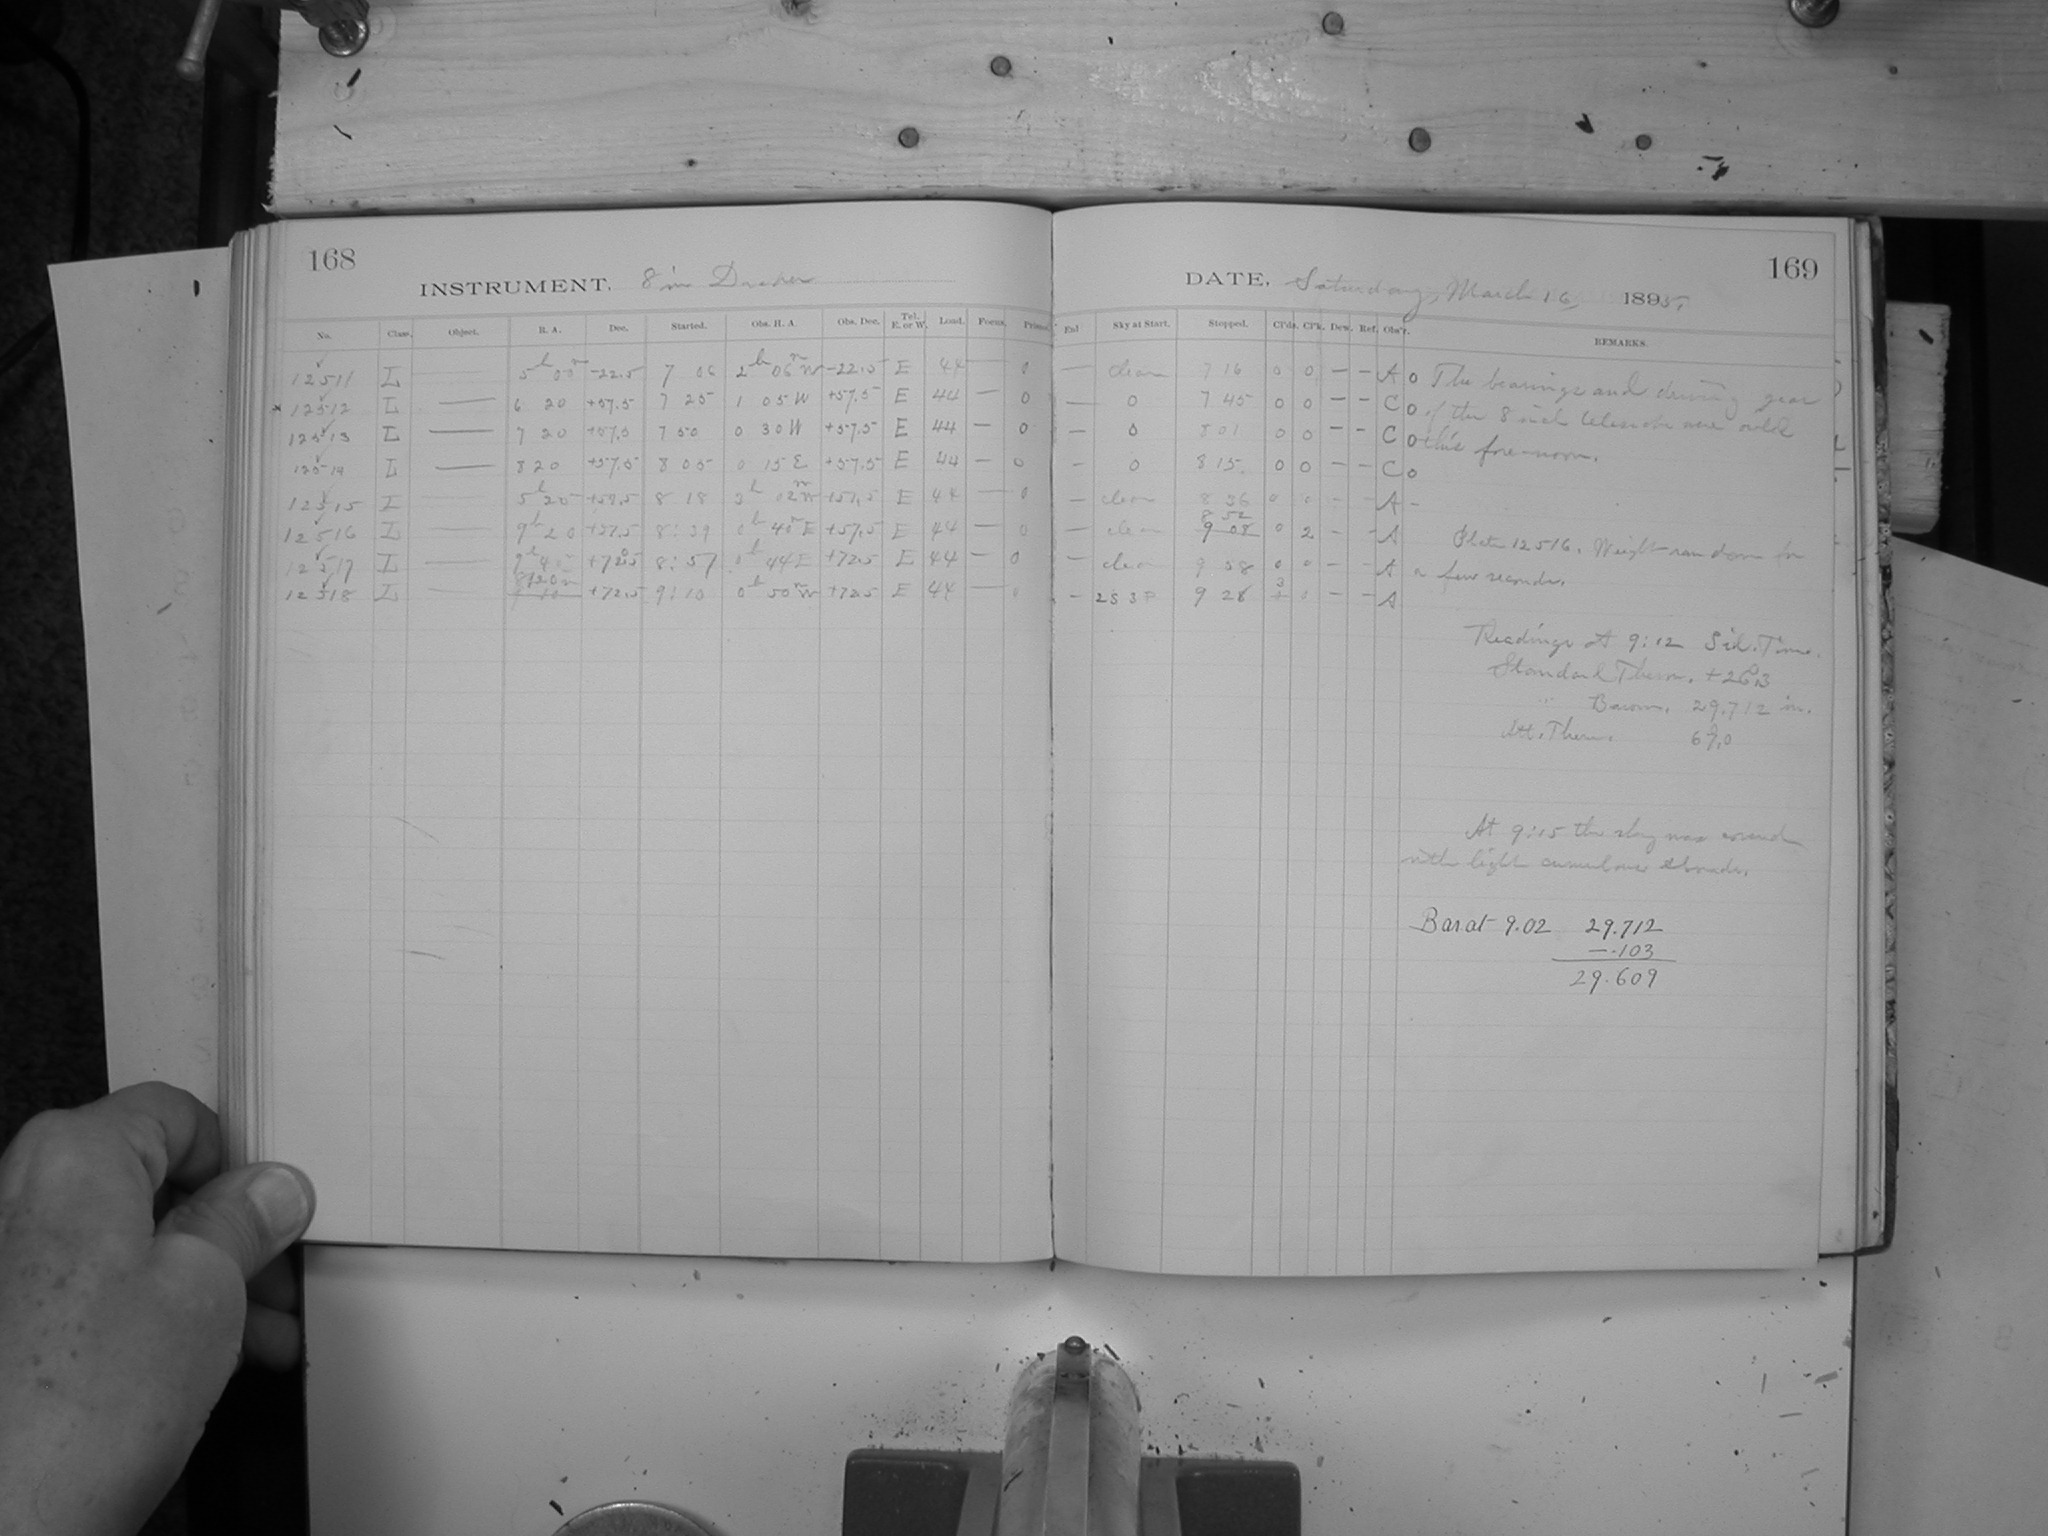 168
INSTRUMENT. 8 in Draper
No. Class. Object. R. A. Dec. Started. Obs. H. A. Obs. Dec. Tel. E. or W. Load. Focus. Prisms.
12511 L —— 5h 00m -22.5 7 06 2h 06m W -22.5 E 44 — 0
12512 L —— 6 20 +57.5 7 25 1 05 W +57.5 E 44 — 0
12513 L —— 7 20 +57.5 7 50 0 30 W +57.5 E 44 — 0
12514 L —— 8 20 +57.5 8 05 0 15 E +57.5 E 44 — 0
12515 L —— 5h 20 8 18 3h 02m W E 44 — 0
12516 L —— 9h 20 +57.5 8:39 0h 40m E +57.5 E 44 — 0
12517 L —— 9h +72.5 8:57 0h 44 E +72.5 E 44 — 0
12518 L —— 8h 20m +72.5 9:10 0h 50m W +72.5 E 44 — 0
169
DATE. Saturday, March 16 1895.
End Sky at Start. Stopped. Cl'ds. Cl'k. Dew. Ref. Obs'r. REMARKS.
— clear 7 16 0 0 — — A 0 The bearings and driving gear
— 0 7 45 0 0 — — C 0 of the 8 inch telescope were oiled
— 0 8 01 0 0 — — C 0 this fore-noon.
— 0 8 15 0 0 — — C 0
— clear 8 36 0 0 — — A -
— clear 8 52 9 08 0 2 — — A Plate 12516. Weight ran down for
— clear 9 08 0 0 — — A a few seconds.
— 2S 3P 9 28 3 0 — — A
Readings at 9:12 Sid. Time.
Standard Therm. +26.3
" Barom. 29.712 in.
Att. Therm. 67.0
At 9:15 the sky was covered
with light cumulous clouds.
Bar at 9.02 29.712
-.103
29.609